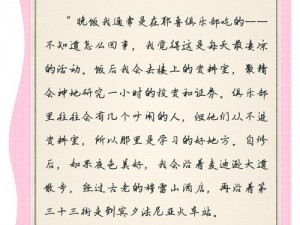 “晚饭我通常是在耶鲁俱乐部吃的——
不知道怎么回事，我觉得这是每天最凄凉
的活动。饭后我会去楼上的资料室，聚精
会神地研究一小时的投资和证券。俱乐部
里往往会有几个吵闹的人，但他们从不进
资料室，所以那里是学习的好地方。自修
后，如果夜色美好，我会沿着麦迪逊大道
散步，经过古老的穆雷山酒店，再沿着第
三十三街走到宾夕法尼亚火车站。